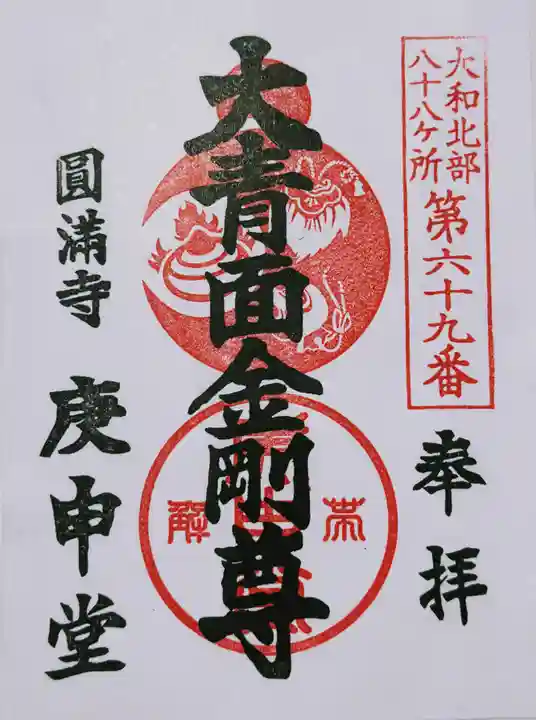 大和北部
八十八ヶ所
第六十九番
奉拝
大青面金剛尊
帯
解
圓満寺
庚申堂